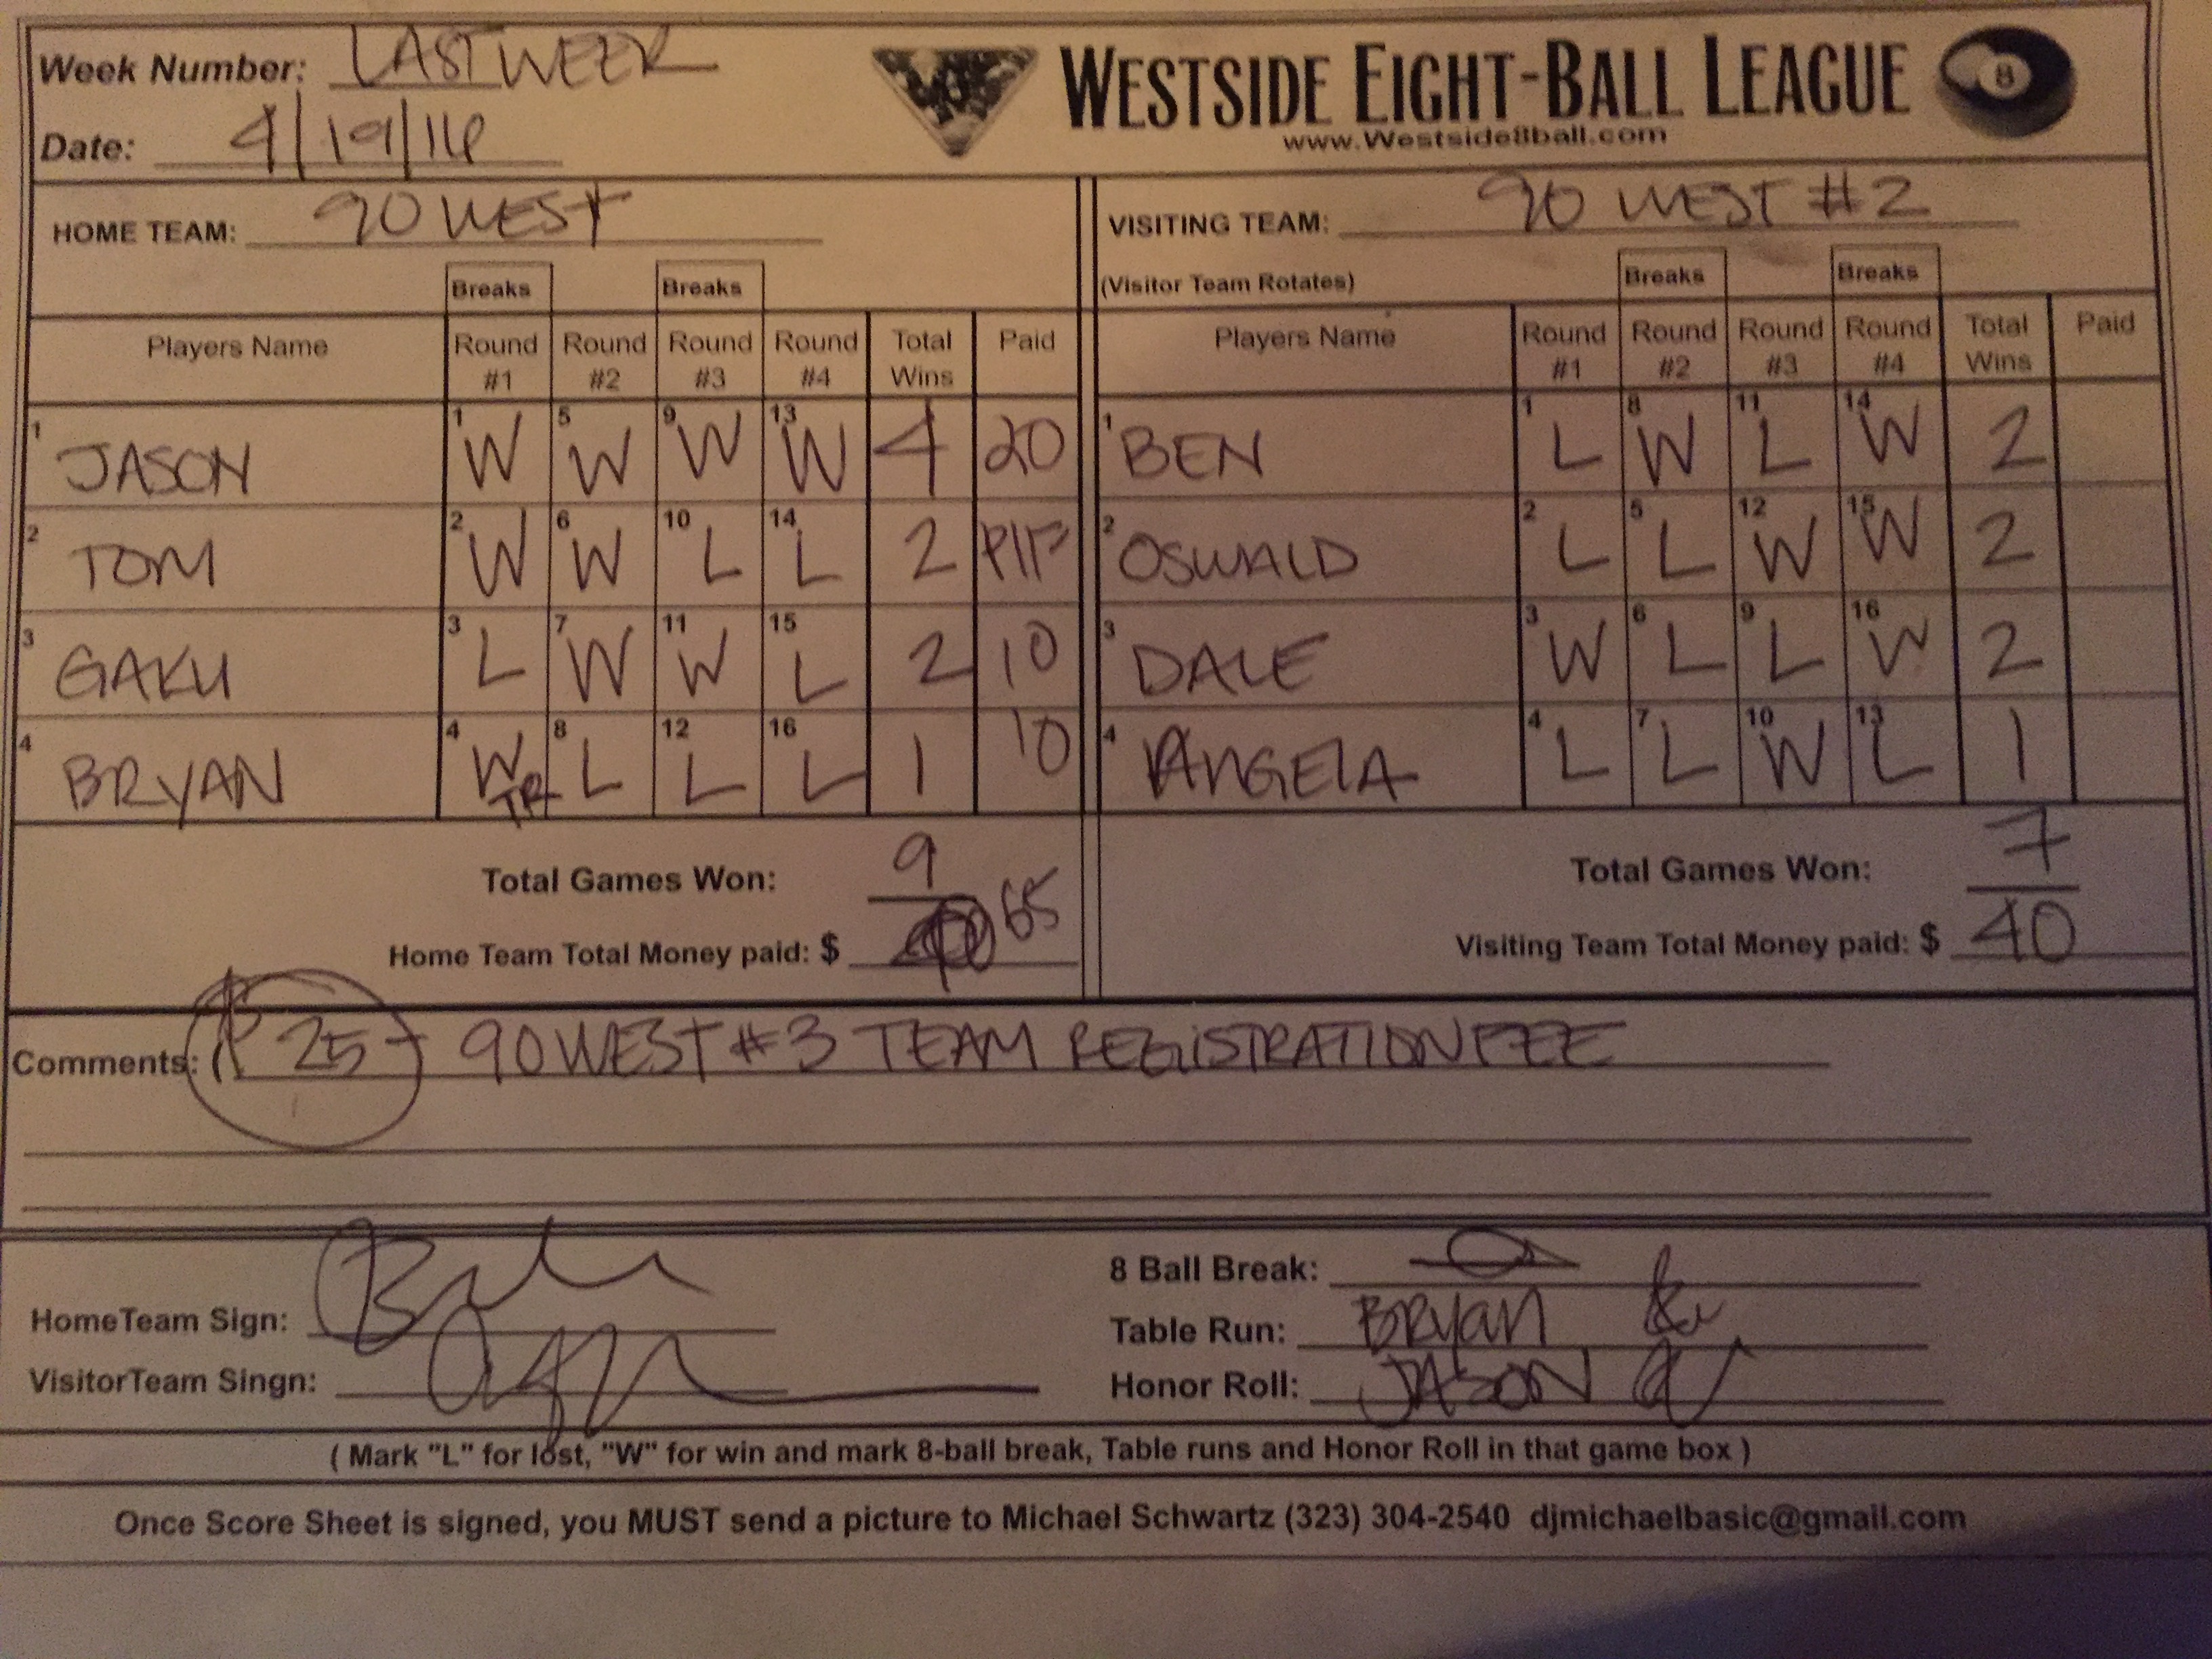 Week Number: LAST WEEK
WESTSIDE EIGHT-BALL LEAGUE
8
www.Westside8ball.com
Date: 4/19/16
HOME TEAM: 90 WEST
VISITING TEAM: 90 WEST #2
(Visitor Team Rotates)
Breaks Breaks Breaks Breaks
Players Name Round #1 Round #2 Round #3 Round #4 Total Wins Paid Players Name Round #1 Round #2 Round #3 Round #4 Total Wins Paid
1 JASON 1 W 5 W 9 W 13 W 4 20 1 BEN 1 L 8 W 11 L 14 W 2
2 TOM 2 W 6 W 10 L 14 L 2 PIF 2 OSWALD 2 L 5 L 12 W 15 W 2
3 GAKU 3 L 7 W 11 W 15 L 2 10 3 DALE 3 W 6 L 9 L 16 W 2
4 BRYAN 4 W TR 8 L 12 L 16 L 1 10 4 ANGELA 4 L 7 L 10 W 13 L 1
Total Games Won: 9 Total Games Won: 7
Home Team Total Money paid: $ 65 Visiting Team Total Money paid: $ 40
Comments: $ 25 - 90 WEST #3 TEAM REGISTRATION FEE
HomeTeam Sign:
VisitorTeam Singn:
8 Ball Break:
Table Run: BRYAN
Honor Roll: JASON
( Mark "L" for lost, "W" for win and mark 8-ball break, Table runs and Honor Roll in that game box )
Once Score Sheet is signed, you MUST send a picture to Michael Schwartz (323) 304-2540 djmichaelbasic@gmail.com